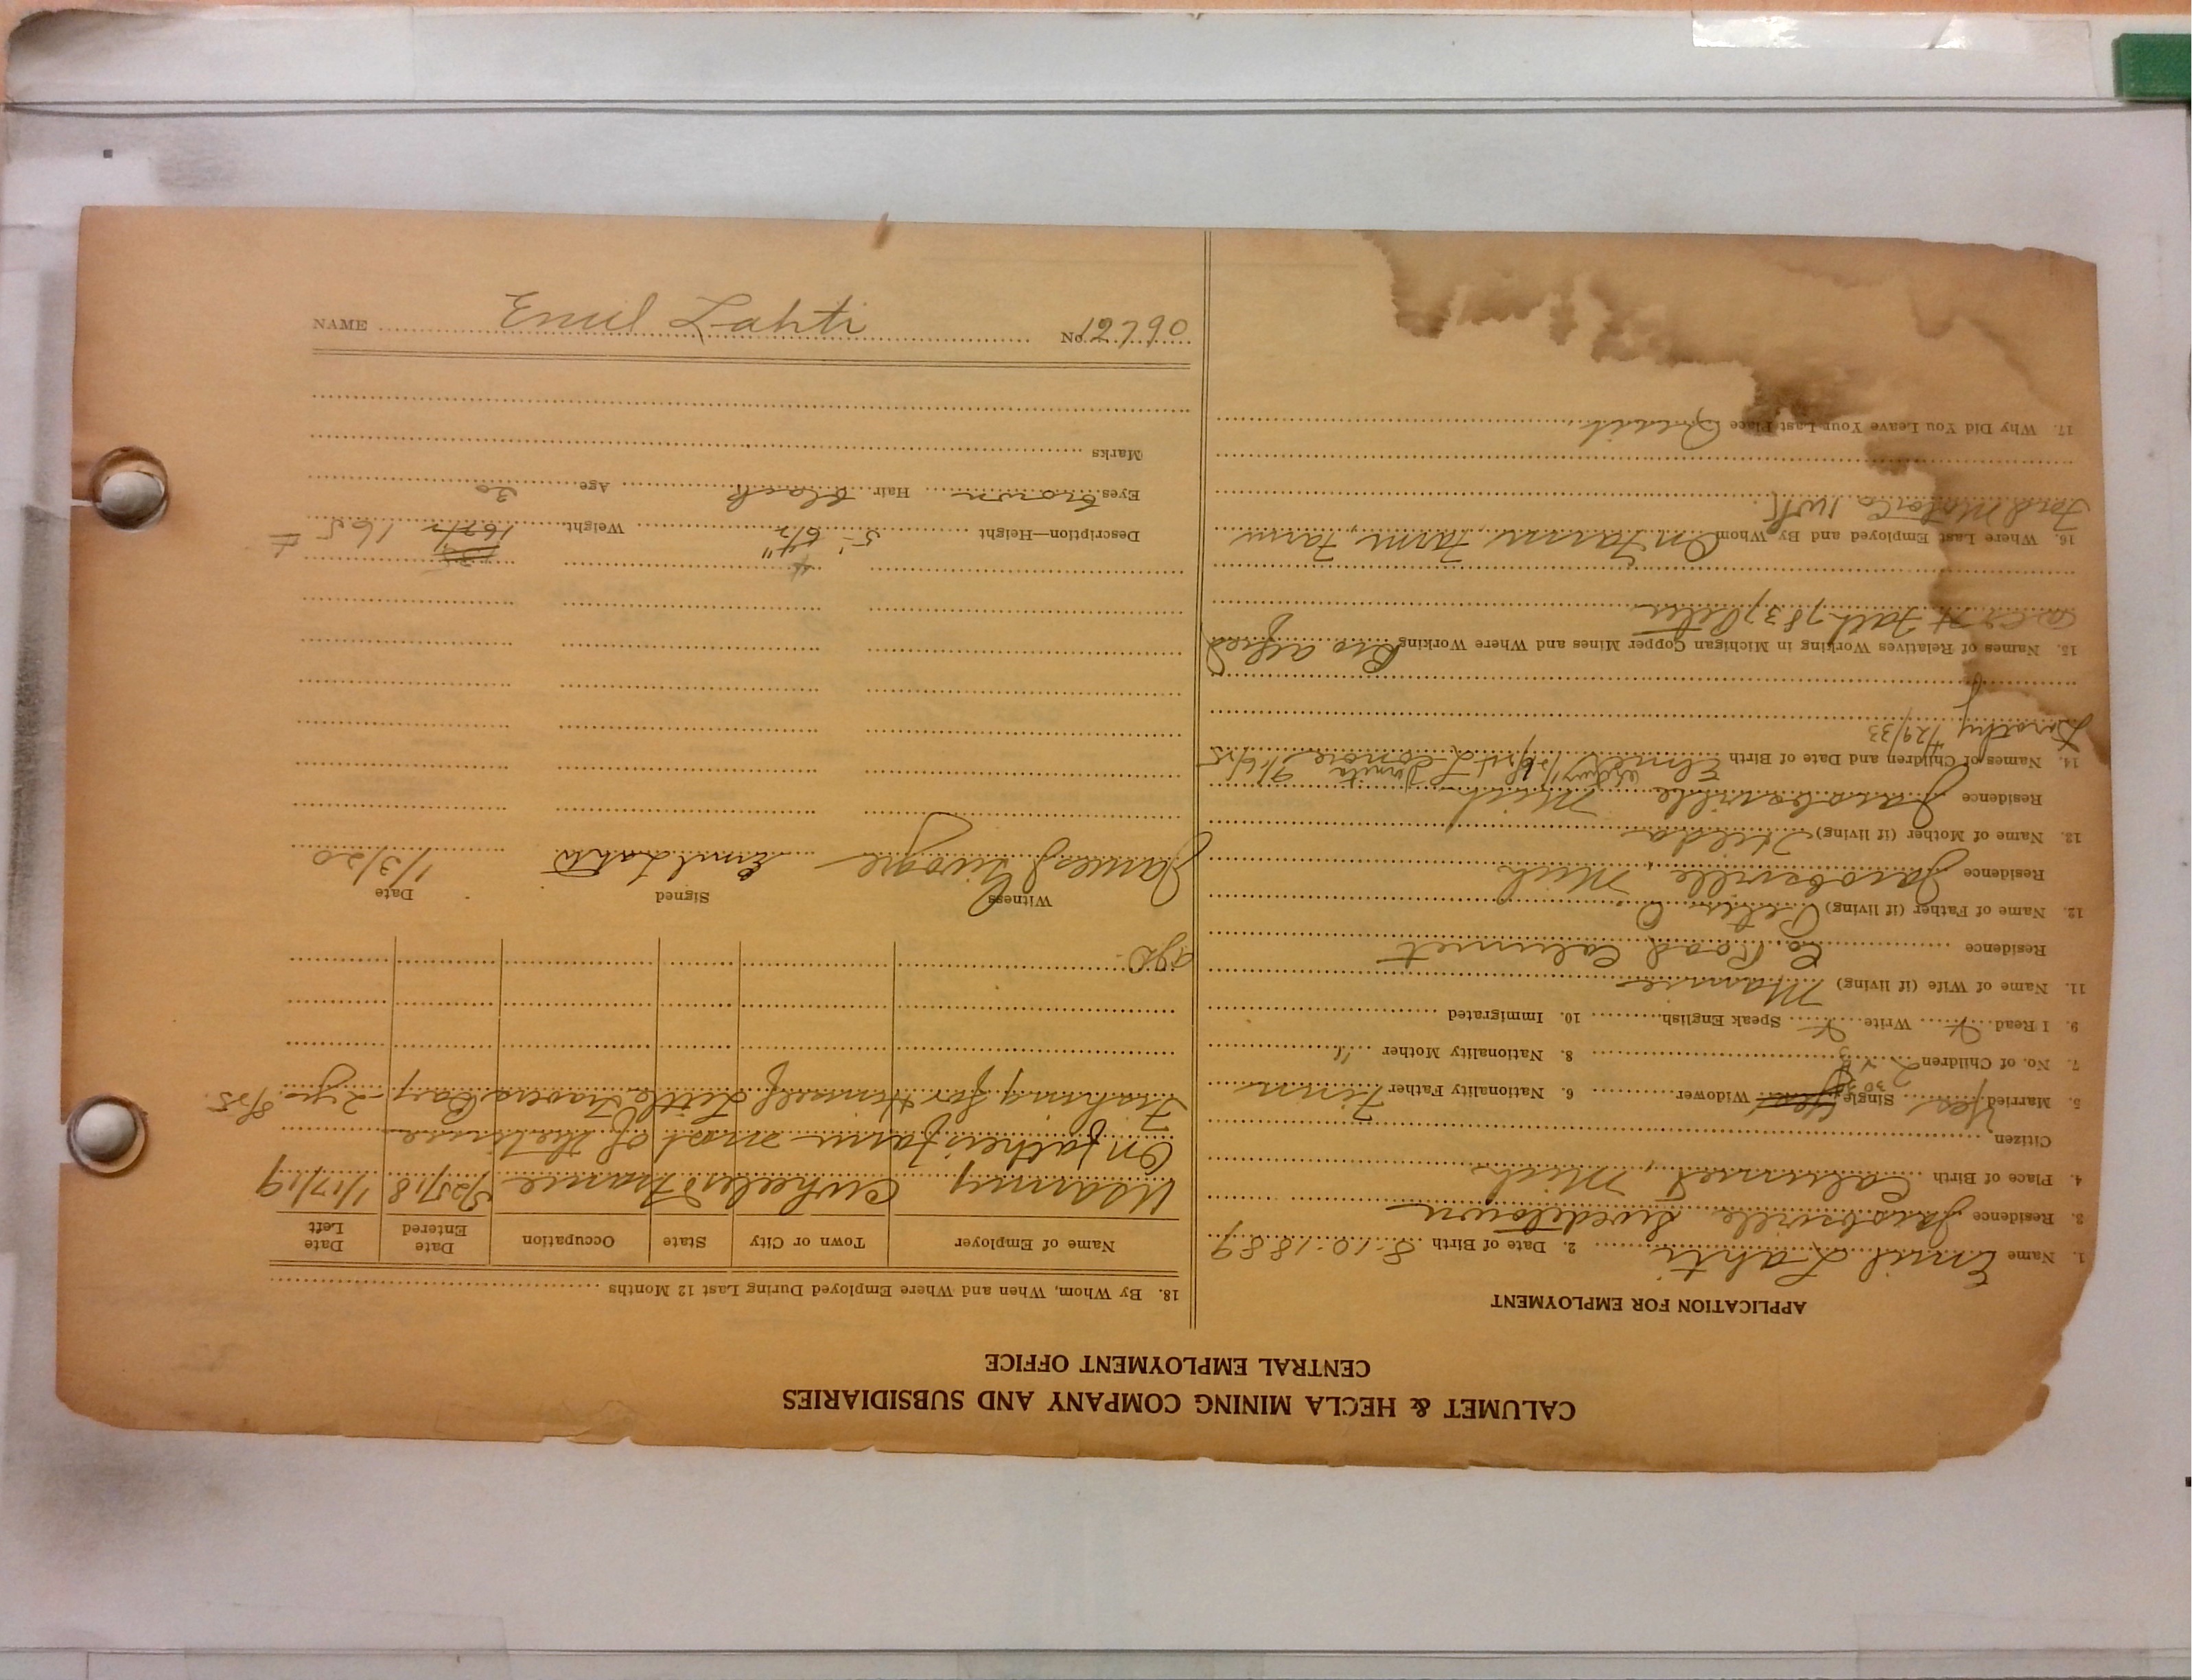 CALUMET & HECLA MINING COMPANY AND SUBSIDIARIES
CENTRAL EMPLOYMENT OFFICE
APPLICATION FOR EMPLOYMENT
1. Name Emil Lahti 2. Date of Birth 8-10-1889
3. Residence Jacobsville Swedetown
4. Place of Birth Calumet, Mich
Citizen
5. Married Yes Single Yes Widower 6. Nationality Father Finn
7. No. of Children 2 8. Nationality Mother "
9. I Read X Write X Speak English 10. Immigrated
11. Name of Wife (if living) Mamie
Residence Co. Road Calumet
12. Name of Father (if living) Peter
Residence Jacobsville, Mich
13. Name of Mother (if living) Hilda
Residence Jacobsville Mich
14. Names of Children and Date of Birth Elmer Lenore
Dorothy 4/29/33
15. Names of Relatives Working in Michigan Copper Mines and Where Working Bro Alfred
Peter
16. Where Last Employed and By Whom On Farm, Farm, Farm
Ford Motor Co
17. Why Did You Leave Your Last Place
18. By Whom, When and Where Employed During Last 12 Months
Name of Employer Town or City State Occupation Date Entered Date Left
U S Army France 5/25/18 1/17/19
On fathers farm most of the time
Fishing for Himself Little Traverse Bay - 2 yrs.
Witness Signed Date
James Emil Lahti 1/3/20
4"
Description—Height 5' 6 1/2 Weight 167 1/2 165
Eyes brown Hair black Age 30
Marks
NAME Emil Lahti No. 12790